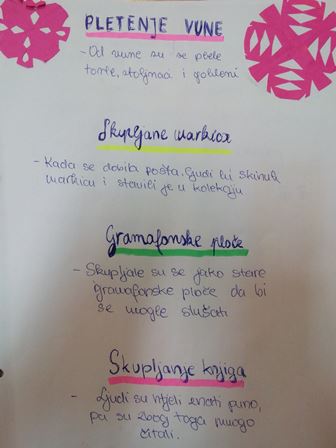 PLETENJE VUNE
- Od vune su se plele
torbe, stoljnaci i gobleni
Skupljane markica
- Kada se dobila pošta, ljudi bi skinuli
markicu i stavili je u kolekciju
Gramafonske ploče
- Skupljale su se jako stare
gramafonske ploče da bi
se mogle slušati
Skupljanje knjiga
- Ljudi su htjeli znati puno,
pa su zbog toga mnogo
čitali.